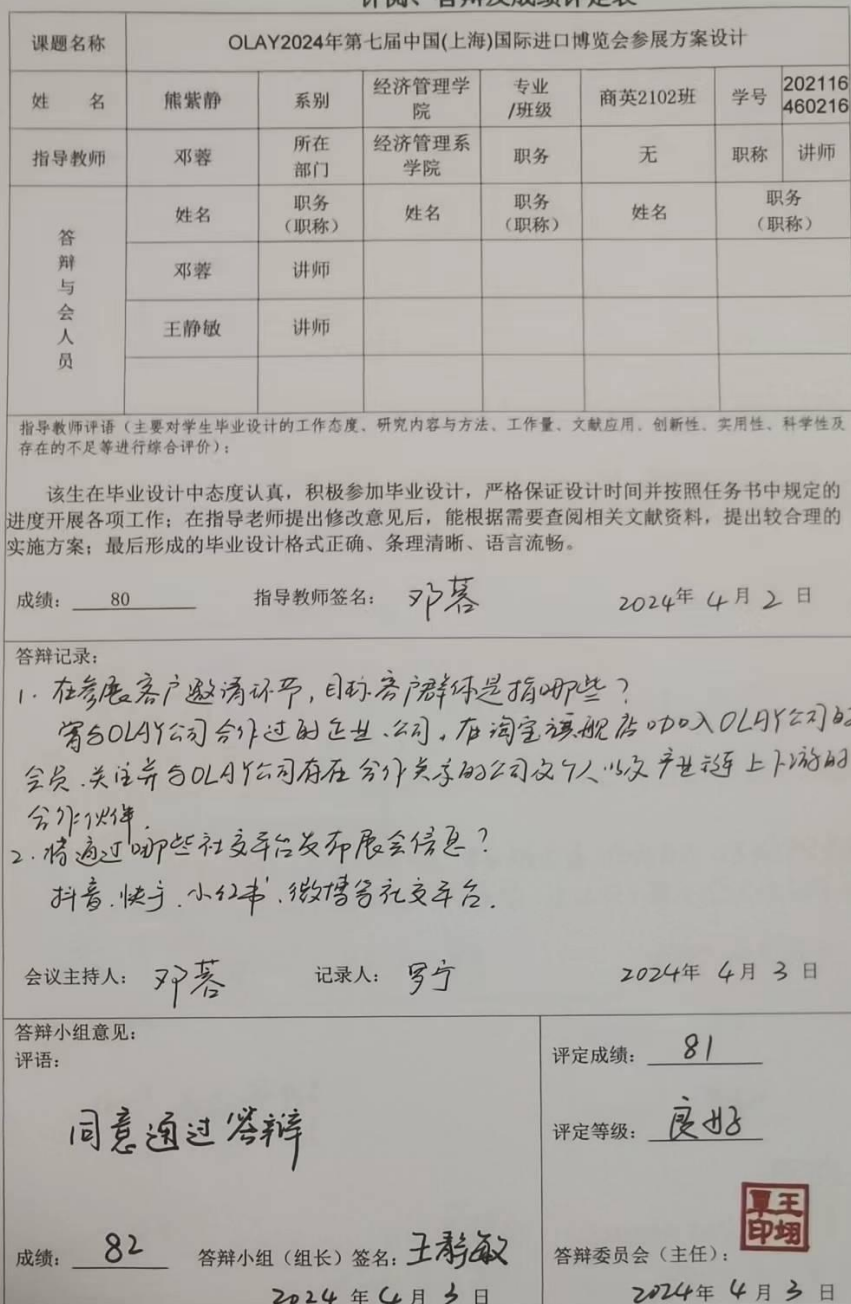 评阅、答辩及成绩评定表
课题名称 OLAY2024年第七届中国(上海)国际进口博览会参展方案设计
姓 名 熊紫静 系别 经济管理学院 专业/班级 商英2102班 学号 202116460216
指导教师 邓蓉 所在部门 经济管理系学院 职务 无 职称 讲师
答辩与会人员 姓名 职务（职称） 姓名 职务（职称） 姓名 职务（职称）
邓蓉 讲师
王静敏 讲师
指导教师评语（主要对学生毕业设计的工作态度、研究内容与方法、工作量、文献应用、创新性、实用性、科学性及
存在的不足等进行综合评价）：
该生在毕业设计中态度认真，积极参加毕业设计，严格保证设计时间并按照任务书中规定的
进度开展各项工作；在指导老师提出修改意见后，能根据需要查阅相关文献资料，提出较合理的
实施方案；最后形成的毕业设计格式正确、条理清晰、语言流畅。
成绩： 80 指导教师签名： 邓蓉 2024年 4 月 2 日
答辩记录：
1. 在参展客户邀请环节，目标客户群体是指哪些？
与OLAY公司合作过的企业、公司，在淘宝旗舰店加入OLAY公司的
会员、关注并与OLAY公司存在合作关系的公司及个人以及产业链上下游的
合作伙伴.
2. 将通过哪些社交平台发布展会信息？
抖音、快手、小红书、微博等社交平台.
会议主持人： 邓蓉 记录人： 罗宁 2024年 4 月 3 日
答辩小组意见：
评语：
同意通过答辩
成绩： 82 答辩小组（组长）签名： 王静敏
2024 年 4 月 3 日
评定成绩： 81
评定等级： 良好
答辩委员会（主任）：
2024年 4 月 3 日